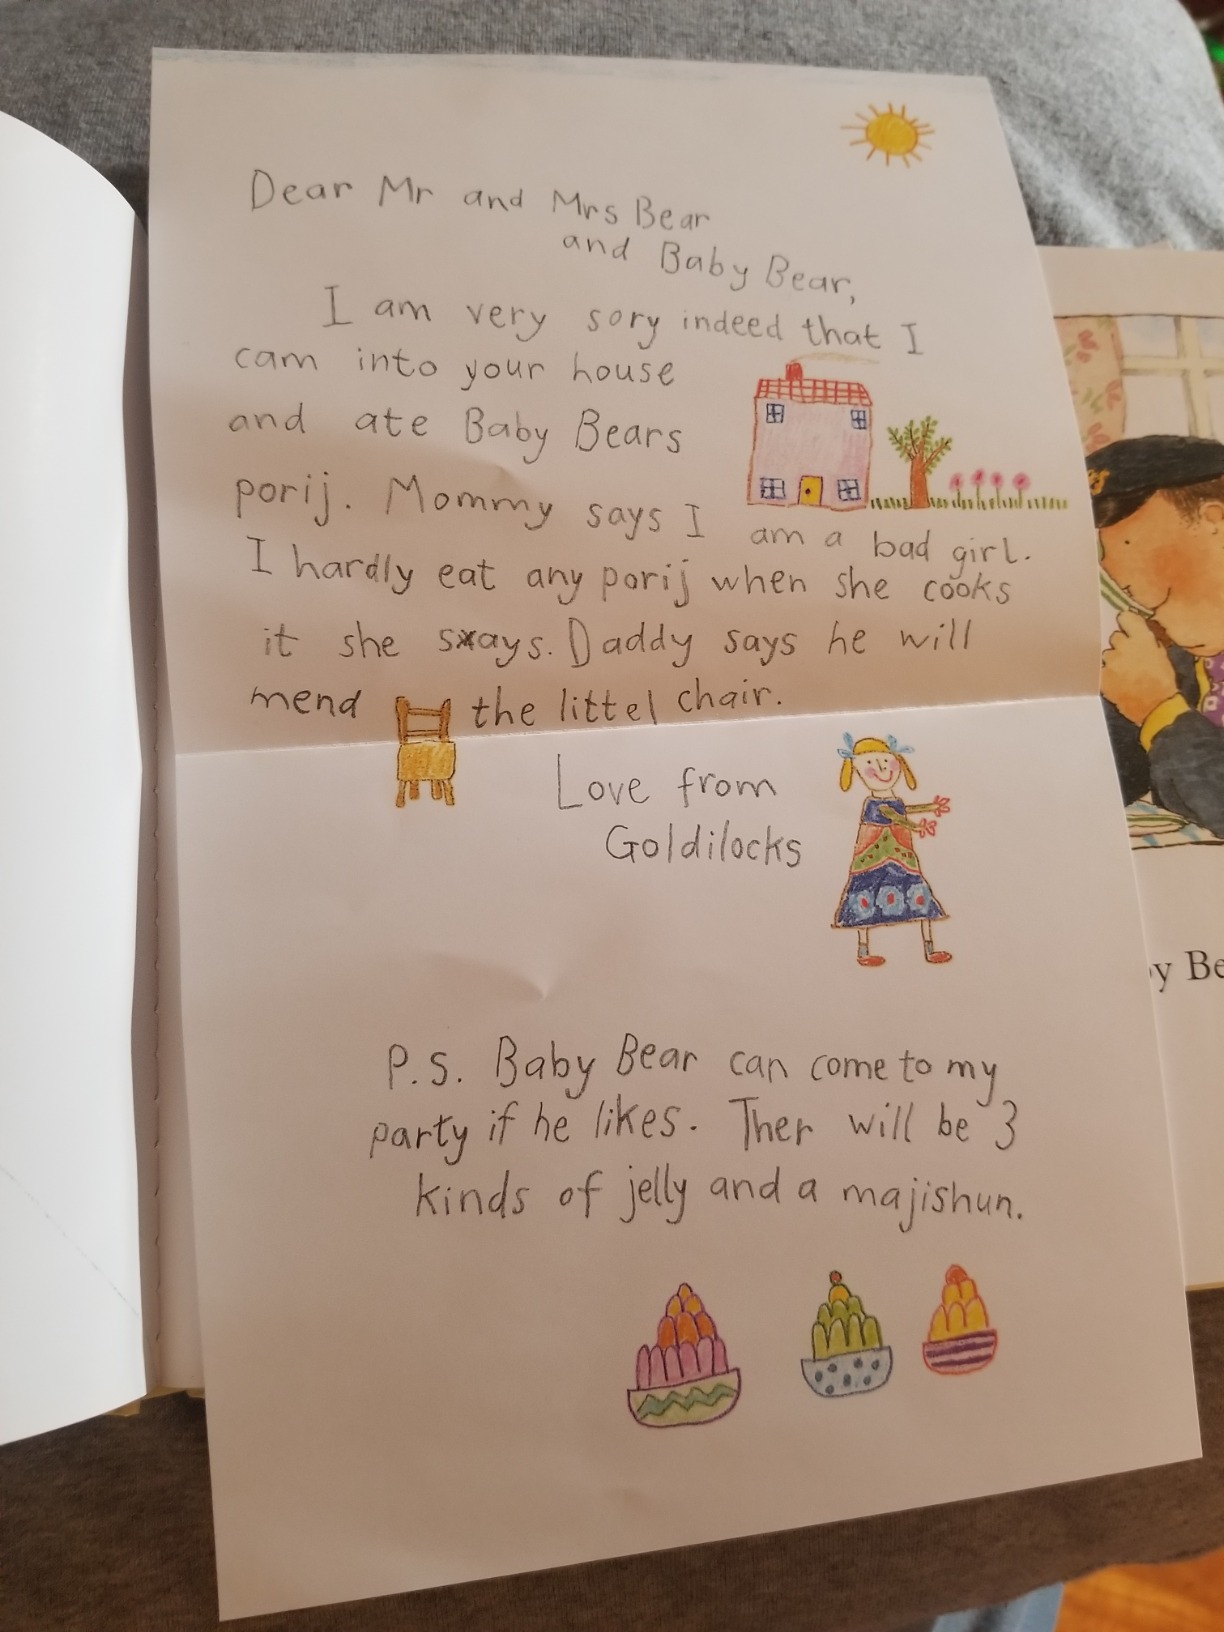 Dear Mr and Mrs Bear
and Baby Bear,
I am very sory indeed that I
cam into your house
and ate Baby Bears
porij. Mommy says I am a bad girl.
I hardly eat any porij when she cooks
it she says. Daddy says he will
mend the littel chair.
Love from
Goldilocks
P.S. Baby Bear can come to my
party if he likes. Ther will be 3
kinds of jelly and a majishun.
y Be